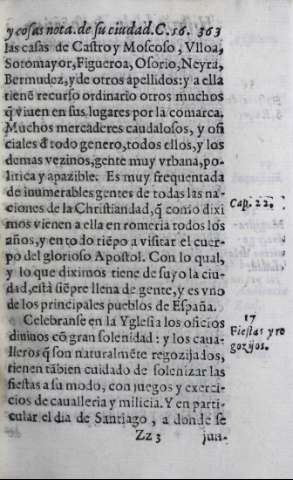 y cosas nota. de su ciudad. C. 16. 363
las casas de Castro y Moscoso, Vlloa,
Sotomayor, Figueroa, Osorio, Neyra,
Bermudez, y de otros apellidos: y a ella
tienẽ recurso ordinario otros muchos
q̃ viuen en sus lugares por la comarca.
Muchos mercaderes caudalosos, y ofi
ciales ď todo genero, todos ellos, y los
demas vezinos, gente muy vrbana, po-
litica y apazible. Es muy frequentada
de inumerables gentes de todas las na-
ciones de la Christiandad, q̃ como dixi
Cap. 22.
mos vienen a ella en romeria todos los
años, y en todo tiẽpo a visitar el cuer-
po del glorioso Apostol. Con lo qual,
y lo que diximos tiene de suyo la ciu-
dad, està siẽpre llena de gente, y es vno
de los principales pueblos de España.
17
Celebranse en la Yglesia los oficios
Fiestas y re
diuinos cõ gran solenidad: y los caua-
gozijos.
lleros q̃ son naturalmẽte regozijados,
tienen tãbien cuidado de solenizar las
fiestas a su modo, con juegos y exerci-
cios de caualleria y milicia. Y en parti-
cular el dia de Santiago, a donde se
Zz 3 jun-